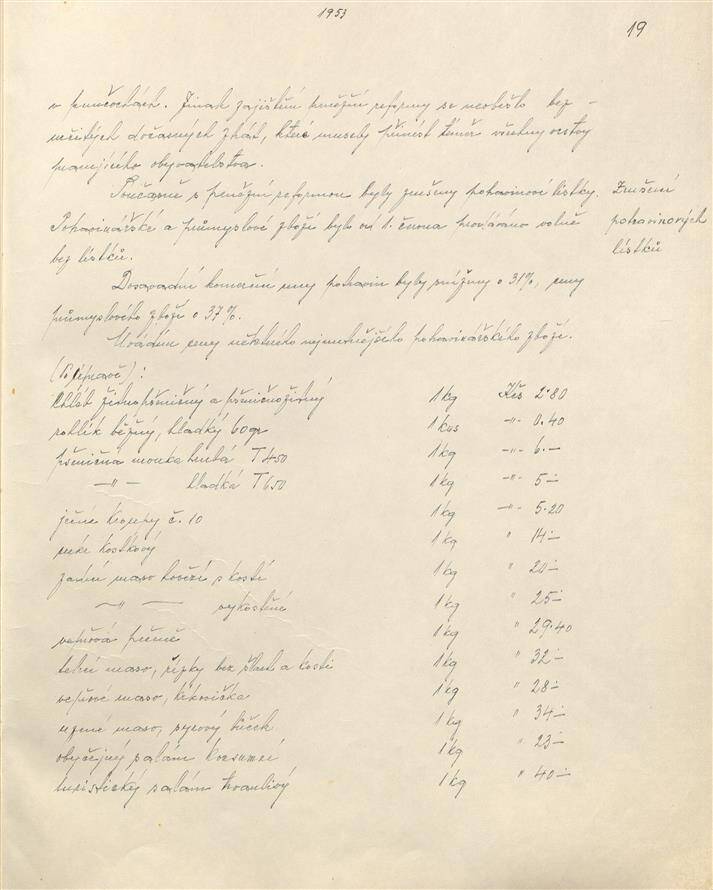 1953
19
v punčochách. Jinak zajištění peněžní reformy se neobešlo bez -
určitých dočasných ztrát, které musely přinést téměř všechny vrstvy
pracujícího obyvatelstva.
Současně s peněžní reformou byly zrušeny potravinové lístky.
Zrušení
potravinových
lístků
Potravinářské a průmyslové zboží bylo od 1. června prodáváno volně
bez lístků.
Dosavadní komerční ceny potravin byly sníženy o 31%, ceny
průmyslového zboží o 37%.
Uvádím ceny některého nejnutnějšího potravinářského zboží.
(Po úpravě):
Chléb žitnopšeničný a pšeničnožitný 1 kg Kčs 2·80
rohlík běžný, hladký 60 gr 1 kus -"- 0.40
pšeničná mouka hrubá T 450 1 kg -"- 6.—
—"— hladká T 650 1 kg -"- 5—
ječné kroupy č. 10 1 kg -"- 5·20
cukr kostkový 1 kg " 14—
zadní maso hovězí s kostí 1 kg " 20—
—"— vykostěné 1 kg " 25—
vepřová pečeně 1 kg " 29·40
telecí maso, řízky bez šlach a kosti 1 kg " 32—
vepřové maso, krkovička 1 kg " 28—
uzené maso, syrový bůček 1 kg " 34—
obyčejný salám konsumní 1 kg " 23—
turistický salám trvanlivý 1 kg " 40—